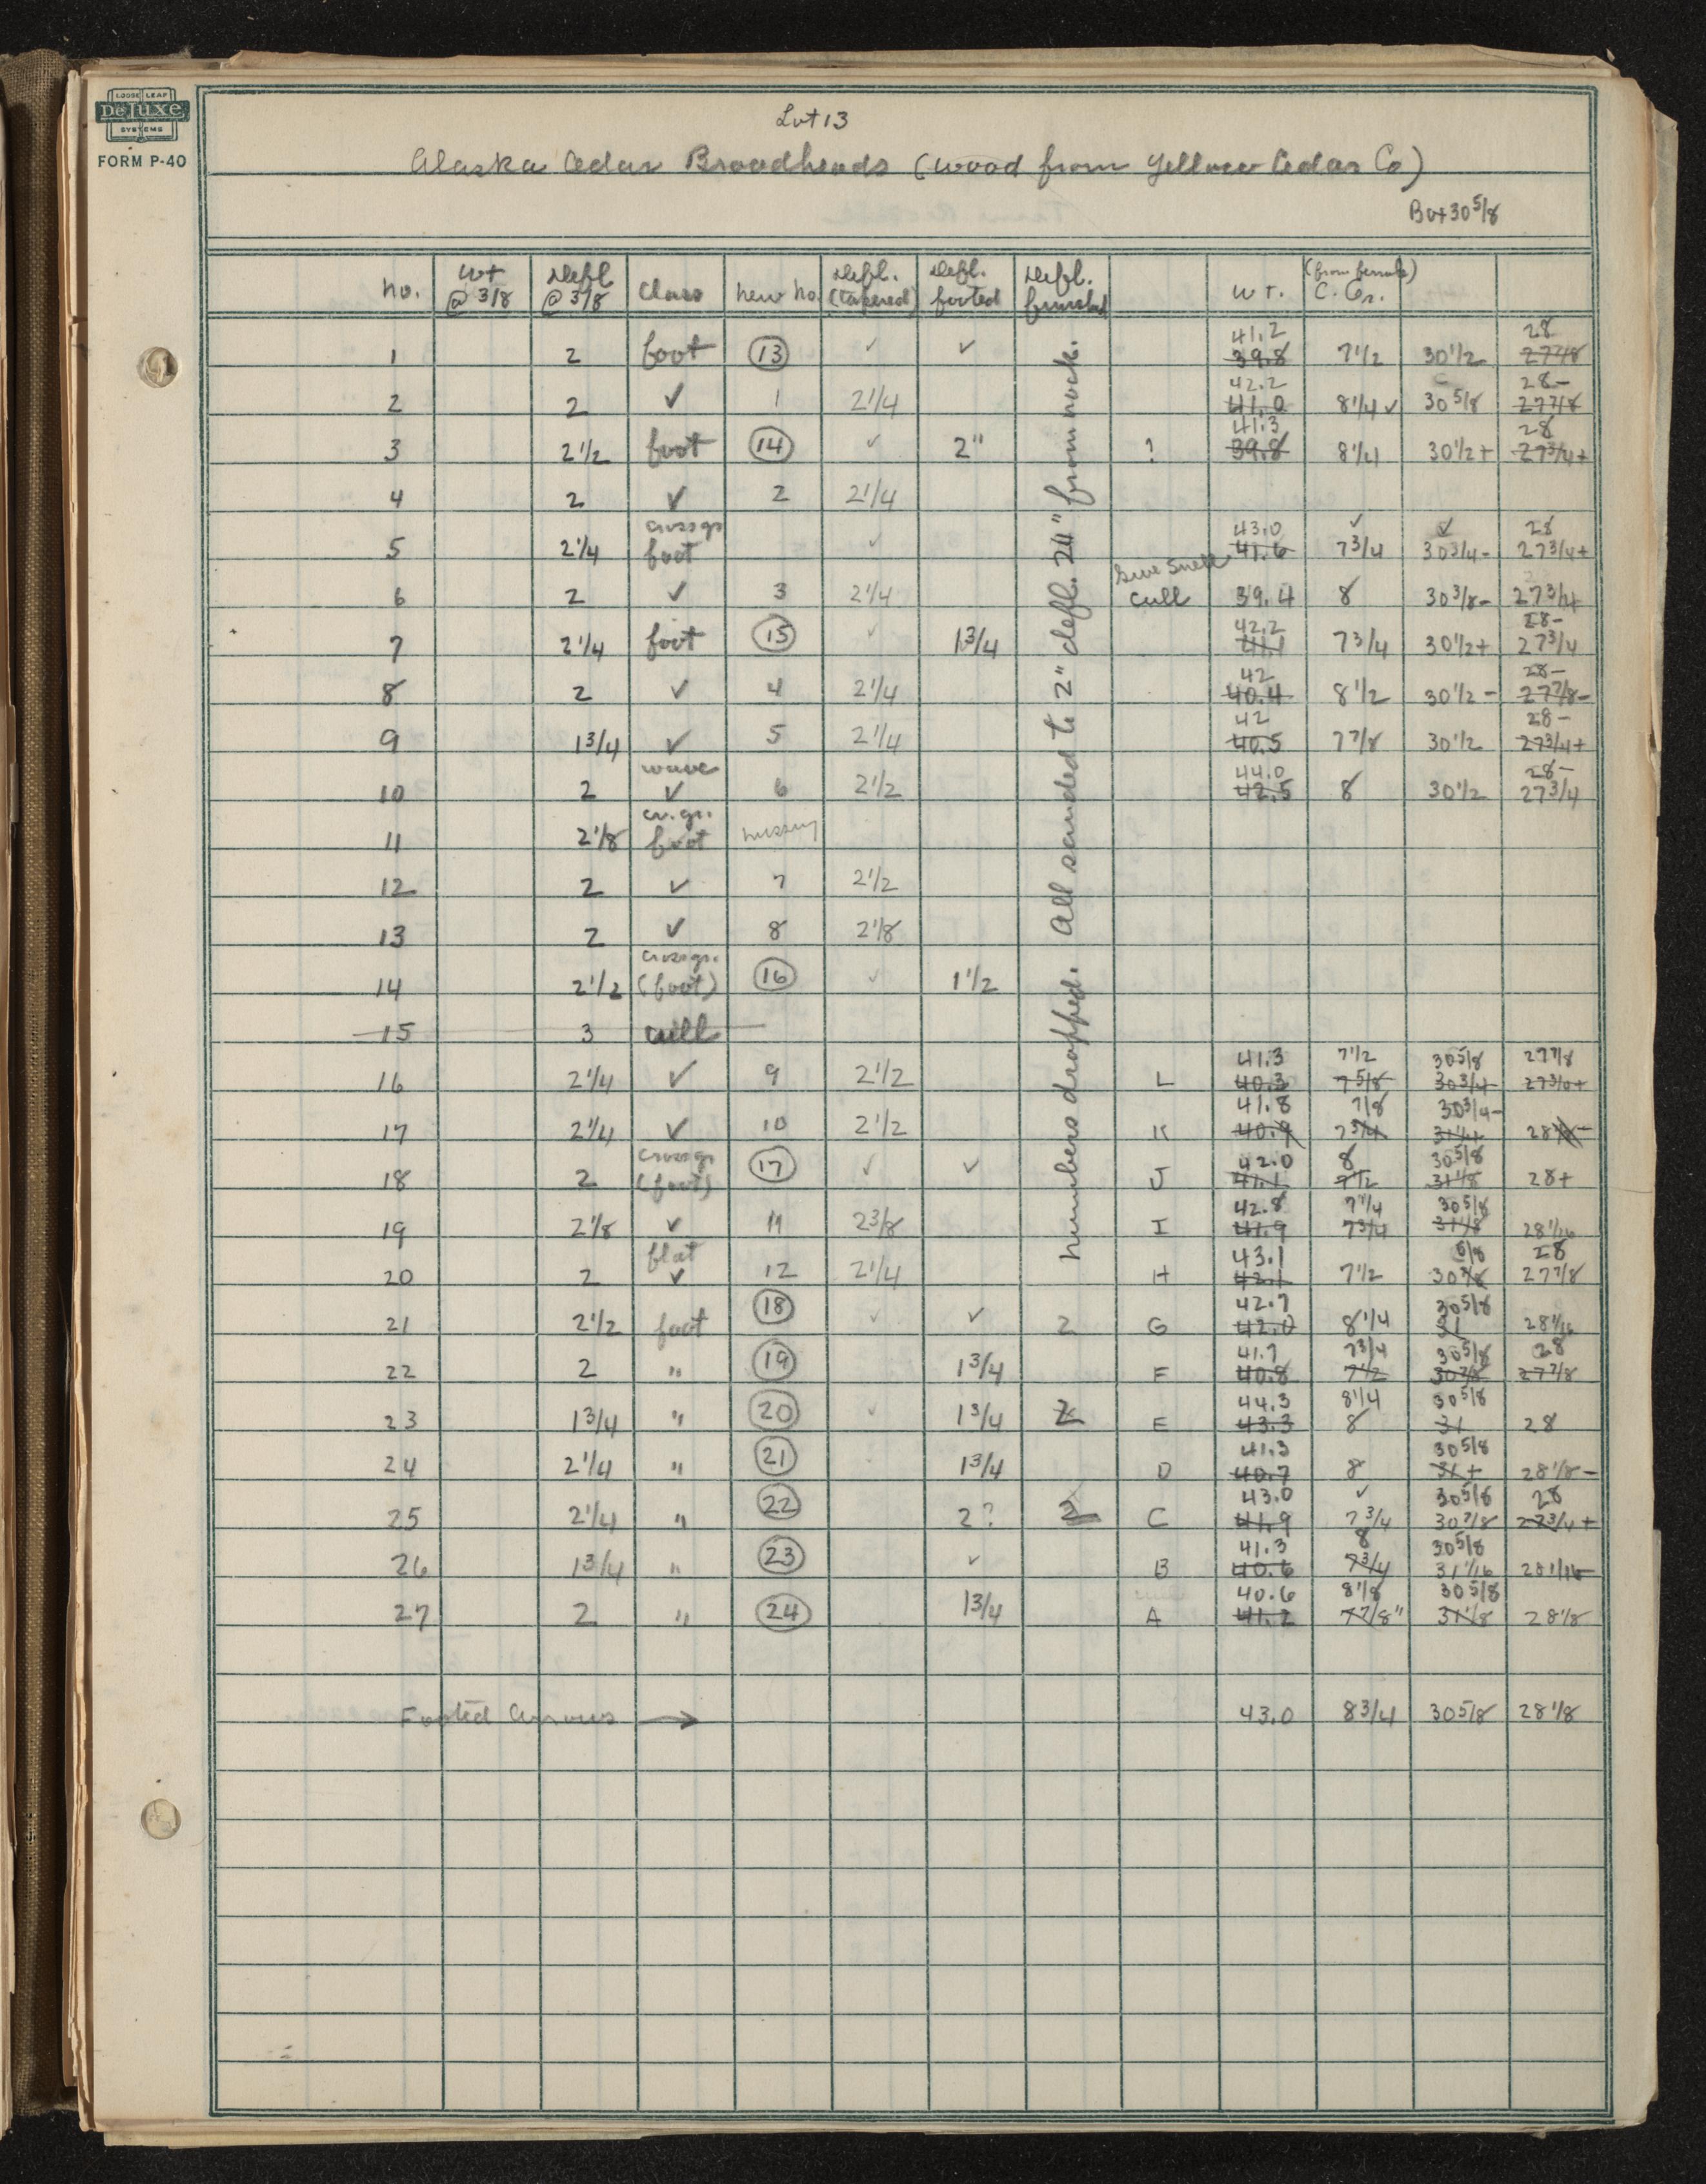 LOOSE LEAF
DeLuxe
SYSTEMS
FORM P-40
Lot 13
Alaska Cedar Broadheads (wood from Yellow Cedar Co)
Bot 30 5/8
No. | Wt @ 3/8 | Defl @ 3/8 | Class | New No. | Defl. (tapered) | Defl. footed | Defl. finished | | WT. | (from ferrule) C. Gr. | |
1 | | 2 | foot | 13 | ✓ | ✓ | | | 41.2 39.8 | 7 1/2 | 30 1/2- | 28 27 7/8
2 | | 2 | ✓ | 1 | 2 1/4 | | | | 42.2 41.0 | 8 1/4 ✓ | 30 5/8 | 28- 27 7/8
3 | | 2 1/2 | foot | 14 | ✓ | 2" | | ? | 41.3 39.8 | 8 1/4 | 30 1/2+ | 28 27 3/4+
4 | | 2 | ✓ | 2 | 2 1/4
5 | | 2 1/4 | crossgr foot | | ✓ | | | | 43.0 41.6 | ✓ 7 3/4 | ✓ 30 3/4- | 28 27 3/4+
6 | | 2 | ✓ | 3 | 2 1/4 | | | Give Snell cull | 39.4 | 8 | 30 3/8- | 27 3/4
7 | | 2 1/4 | foot | 15 | ✓ | 1 3/4 | | | 42.2 41.1 | 7 3/4 | 30 1/2+ | 28- 27 3/4
8 | | 2 | ✓ | 4 | 2 1/4 | | | | 42 40.4 | 8 1/2 | 30 1/2- | 28- 27 7/8-
9 | | 1 3/4 | ✓ | 5 | 2 1/4 | | | | 42 40.5 | 7 7/8 | 30 1/2 | 28- 27 3/4+
10 | | 2 | wave ✓ | 6 | 2 1/2 | | | | 44.0 42.5 | 8 | 30 1/2 | 28- 27 3/4
11 | | 2 1/8 | cr.gr. foot | missing
12 | | 2 | ✓ | 7 | 2 1/2
13 | | 2 | ✓ | 8 | 2 1/8
14 | | 2 1/2 | crossgr. (foot) | 16 | ✓ | 1 1/2
15 | | 3 | cull
16 | | 2 1/4 | ✓ | 9 | 2 1/2 | | | L | 41.3 40.3 | 7 1/2 7 5/8 | 30 5/8 30 3/4 | 27 7/8 27 3/4+
17 | | 2 1/4 | ✓ | 10 | 2 1/2 | | | K | 41.8 40.9 | 7/8 7 3/4 | 30 3/4- 31 1/4 | 28
18 | | 2 | crossgr (foot) | 17 | ✓ | ✓ | | J | 42.0 41.1 | 8 7 1/2 | 30 5/8 31 1/8 | 28+
19 | | 2 1/8 | ✓ | 11 | 2 3/8 | | | I | 42.8 41.9 | 7 1/4 7 3/4 | 30 5/8 31 1/8 | 28 1/16
20 | | 2 | flat ✓ | 12 | 2 1/4 | | | H | 43.1 42.1 | 7 1/2 | 5/8 30 7/8 | 28 27 7/8
21 | | 2 1/2 | foot | 18 | ✓ | ✓ | 2 | G | 42.7 42.0 | 8 1/4 | 30 5/8 31 | 28 1/16
22 | | 2 | " | 19 | | 1 3/4 | | F | 41.7 40.8 | 7 3/4 7 1/2 | 30 5/8 30 7/8 | 28 27 7/8
23 | | 1 3/4 | " | 20 | ✓ | 1 3/4 | 2 | E | 44.3 43.3 | 8 1/4 8 | 30 5/8 31 | 28
24 | | 2 1/4 | " | 21 | | 1 3/4 | | D | 41.3 40.7 | 8 | 30 5/8 31+ | 28 1/8-
25 | | 2 1/4 | " | 22 | | 2? | 2 | C | 43.0 41.9 | ✓ 7 3/4 | 30 5/8 30 7/8 | 28 27 3/4+
26 | | 1 3/4 | " | 23 | | ✓ | | B | 41.3 40.6 | 8 7 3/4 | 30 5/8 31 1/16 | 28 1/16
27 | | 2 | " | 24 | | 1 3/4 | | A | 40.6 41.2 | 8 1/8 7 7/8" | 30 5/8 31 1/8 | 28 1/8
Numbers dropped. All sanded to 2" defl. 24" from nock.
Footed Arrows → | 43.0 | 8 3/4 | 30 5/8 | 28 1/8